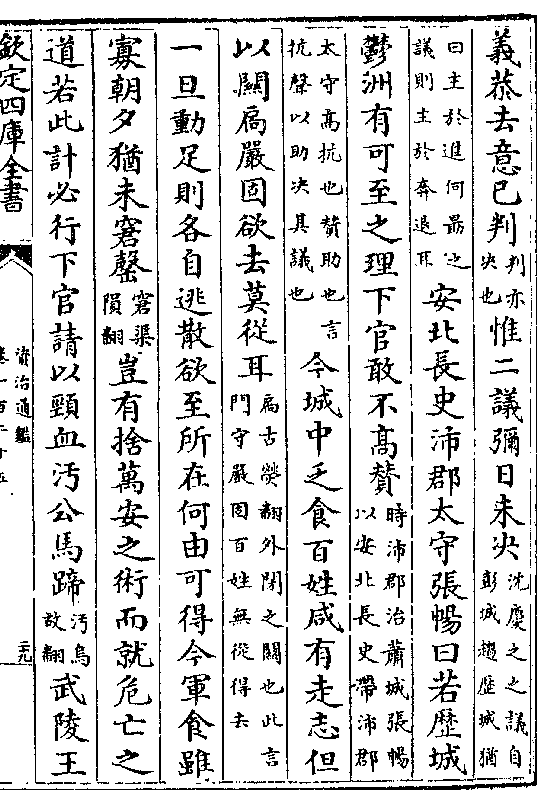 義恭去意已判判亦决也惟二議彌日未决沈慶之之議自彭城趨歴城猶
曰主於進何朂之議則主於奔退耳安北長史沛郡太守張暢曰若歴城
鬱洲有可至之理下官敢不髙贊時沛郡治蕭城張暢以安北長史帶沛郡
太守髙抗也贊助也言抗聲以助决其議也今城中乏食百姓咸有走志但
以關扃嚴固欲去莫從耳扃古熒翻外閉之關也此言門守嚴固百姓無從得去
一旦動足則各自逃散欲至所在何由可得今軍食雖
寡朝夕猶未窘罄窘渠隕翻豈有捨萬安之術而就危亡之
道若此計必行下官請以頸血汚公馬蹄汚烏故翻武陵王
欽定四庫全書
資治通鑑
卷一百二十五